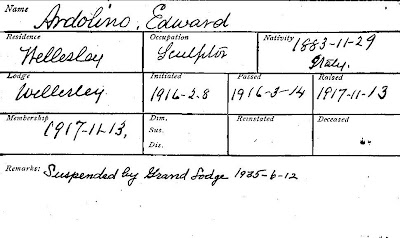 Name Ardolino, Edward
Residence Occupation Nativity 1883-11-29
Wellesley Sculptor Italy.
Lodge Initiated Passed Raised
Wellesley 1916-2-8 1916-3-14 1917-11-13
Membership Dim. Reinstated Deceased
1917-11-13, Sus.
Dis.
Remarks: Suspended by Grand Lodge 1935-6-12